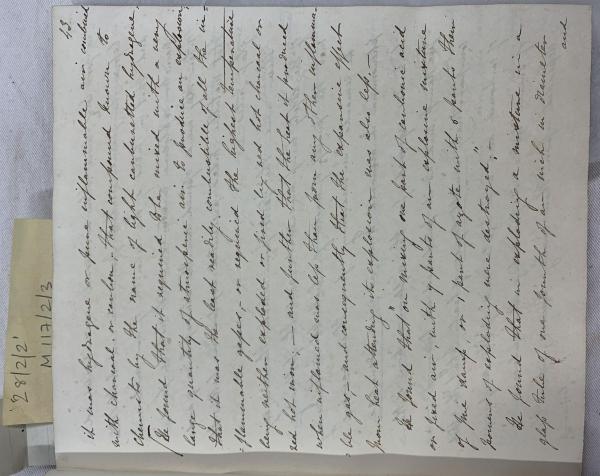 28/2/21
M117/2/3
13.
it was hydrogene or pure inflammable air united
with charcoal or carbon, - that compound known to
chemists by the name of light carburetted hydrogene.
He found that it required to be mixed with a very
large quantity of atmospheric air to produce an explosion,
that it was the least readily combustible of all the in-
-flammable gases, - or required the highest temperature
being neither exploded or fired by red hot charcoal or
red hot iron; - and further that the heat it produced
when inflamed was less than from any other inflamma-
-ble gas, - and consequently that the expansive effect
from heat attending its explosion was also less. -
He found that "on mixing one part of carbonic acid
or fixed air, with 7 parts of an explosive mixture
of fire damp, or 1 part of azote with 6 parts their
powers of exploding were destroyed;"
He found that in exploding a mixture in a
glass tube of one fourth of an inch in diameter
and